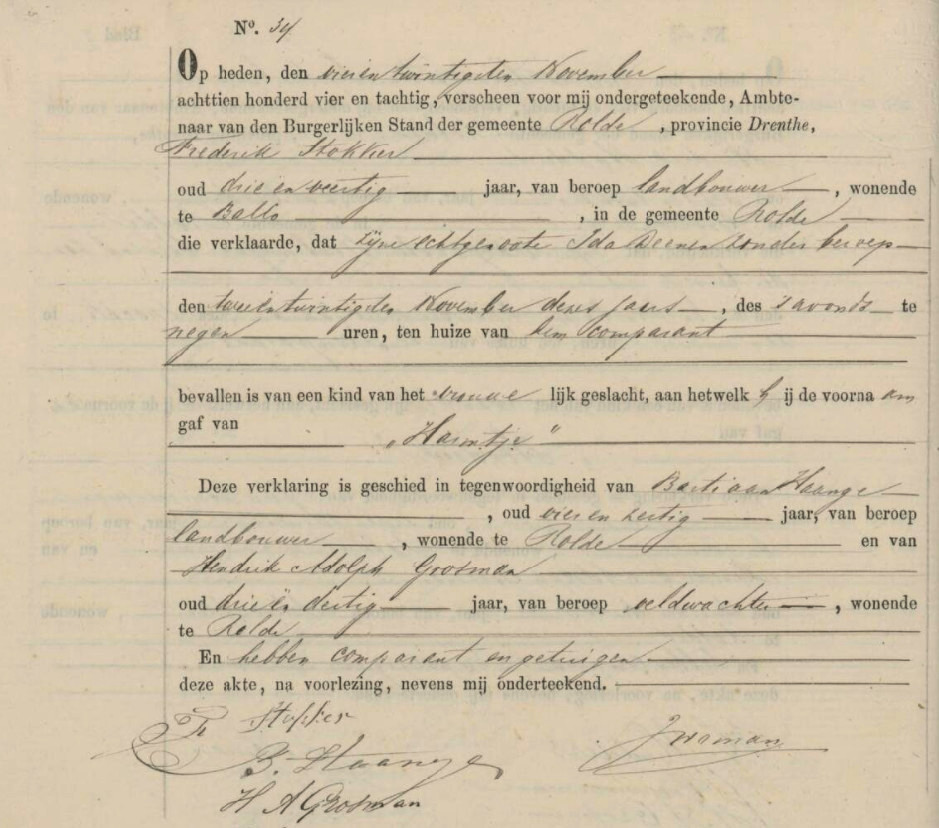 No. 34
Op heden, den vierentwintigsten November
achttien honderd vier en tachtig, verscheen voor mij ondergeteekende, Ambte-
naar van den Burgerlijken Stand der gemeente Rolde, provincie Drenthe,
Frederik Stokker
oud drie en veertig jaar, van beroep landbouwer, wonende
te Ballo, in de gemeente Rolde
die verklaarde, dat zijne echtgenoote Ida Deenen zonder beroep
den tweeentwintigsten November dezes jaars, des s avonds te
negen uren, ten huize van hem comparant
bevallen is van een kind van het vrouwe lijk geslacht, aan hetwelk h ij de voorna am
gaf van
„Harmtje"
Deze verklaring is geschied in tegenwoordigheid van Bastiaan Haange
, oud vier en zestig jaar, van beroep
landbouwer, wonende te Rolde en van
Hendrik Adolph Grosman
oud drie en dertig jaar, van beroep veldwachter, wonende
te Rolde
En hebben comparant en getuigen
deze akte, na voorlezing, nevens mij onderteekend.
F Stokker
B. Haange
H A Grosman